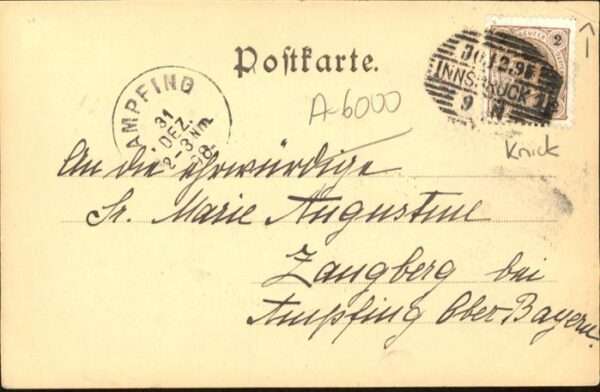 Postkarte.
2
30.12.98
INNSBRUCK 1
9 N
AMPFING
31
DEZ.
2-3 Nm.
98.
A-6000
Knick
An die ehrwürdige
Sr. Marie Augustine
Zangberg bei
Ampfing Ober Bayern.